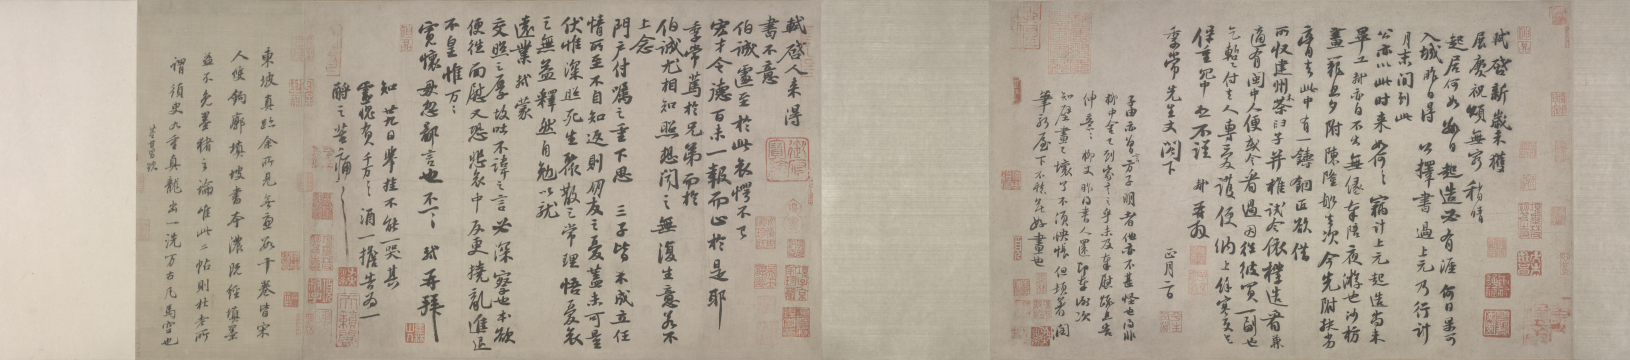 軾啓新歲未獲
展慶祝頌無窮稍晴
起居何如數日起造必有涯何日果可
入城昨日得公擇書過上元乃行計
月末間到此
公亦以此時來如何如何竊計上元起造尚未
畢工軾亦自不出無緣奉陪夜游也沙枋
畫籠旦夕附陳隆船去次今先附扶劣
膏去此中有一鑄銅匠欲借
所收建州木茶臼子并椎試令依樣造看兼
適有閩中人便或令看過因往彼買一副也
乞暫付去人專愛護便納上餘寒更乞
保重冗中恕不謹軾再拜
季常先生丈閣下正月二日
子由亦曾言方子明者他亦不甚怪也得非
柳中舍已到家言之乎未及奉慰疏且告
伸意伸意柳丈昨得書人還即奉謝次
知壁畫已壞了不須怏悵但頓著潤
筆新屋下不愁無好畫也
軾啓人來得
書不意
伯誠遽至於此哀愕不已
宏才令德百未一報而止於是耶
季常篤於兄弟而於
伯誠尤相知照想聞之無復生意若不
上念
門户付囑之重下思三子皆未成立任
情所至不自知返則朋友之憂蓋未可量
伏惟深照死生聚散之常理悟憂哀
之無益釋然自勉以就
遠業軾蒙
交照之厚故吐不諱之言必深察也本欲
便往面慰又恐悲哀中反更撓亂進退
不皇惟萬萬
寬懷毋忽鄙言也不一一軾再拜
知廿九日舉挂不能一哭其
靈愧負千萬千萬酒一擔告爲一
酹之苦痛苦痛
東坡真跡余所見無慮數十卷皆宋
人雙鉤廓填坡書本濃既經填墨
益不免墨豬之論唯此二帖則杜老所
謂須臾九重真龍出一洗萬古凡馬空也
董其昌題